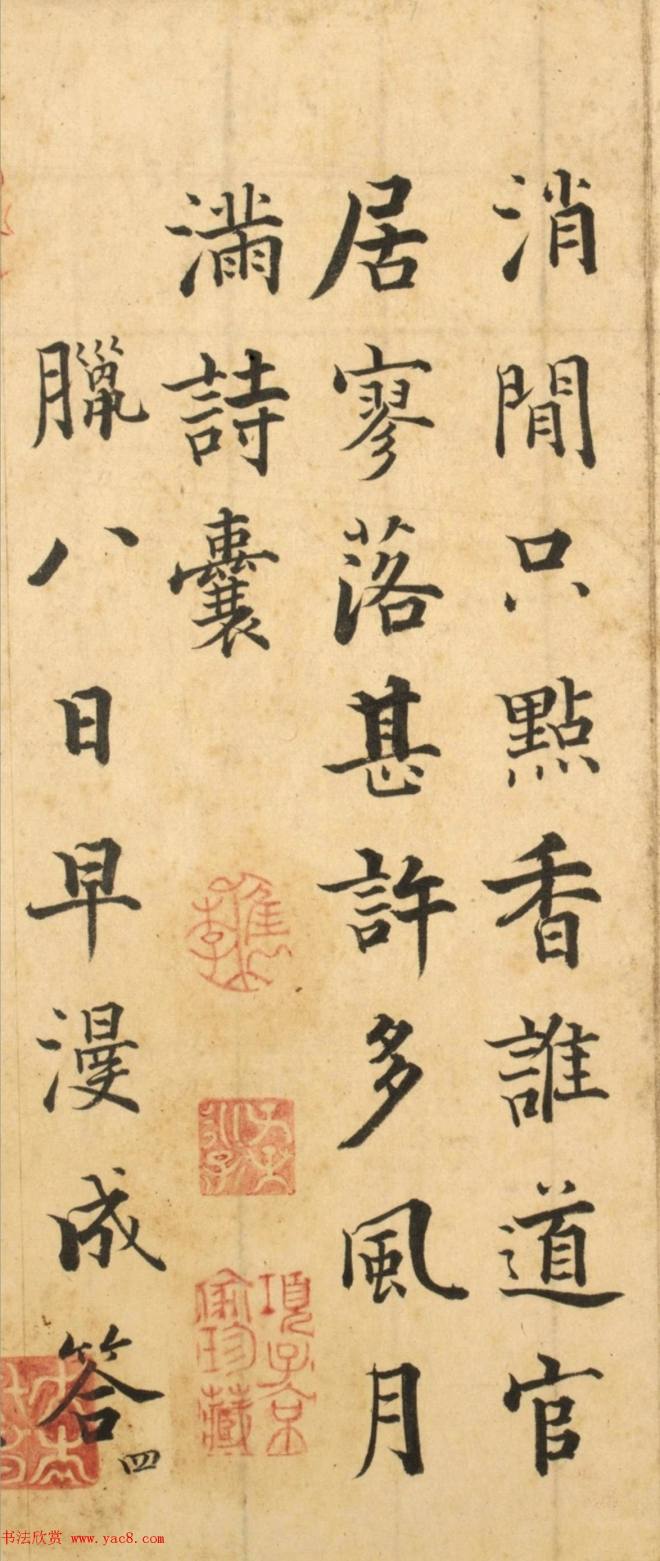 消閒只點香誰道官
居寥落甚許多風月
滿詩囊
項子京
家珍藏
臘八日早漫成答
四
书法欣赏 www.yac8.com